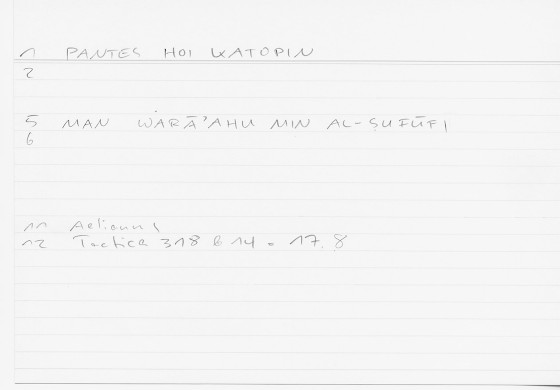 1 PANTES HOI KATOPIN
2
5 MAN WARĀʾAHU MIN AL-ṢUFŪFI
6
11 Aelianus
12 Tactica 318 b 14 = 17.8